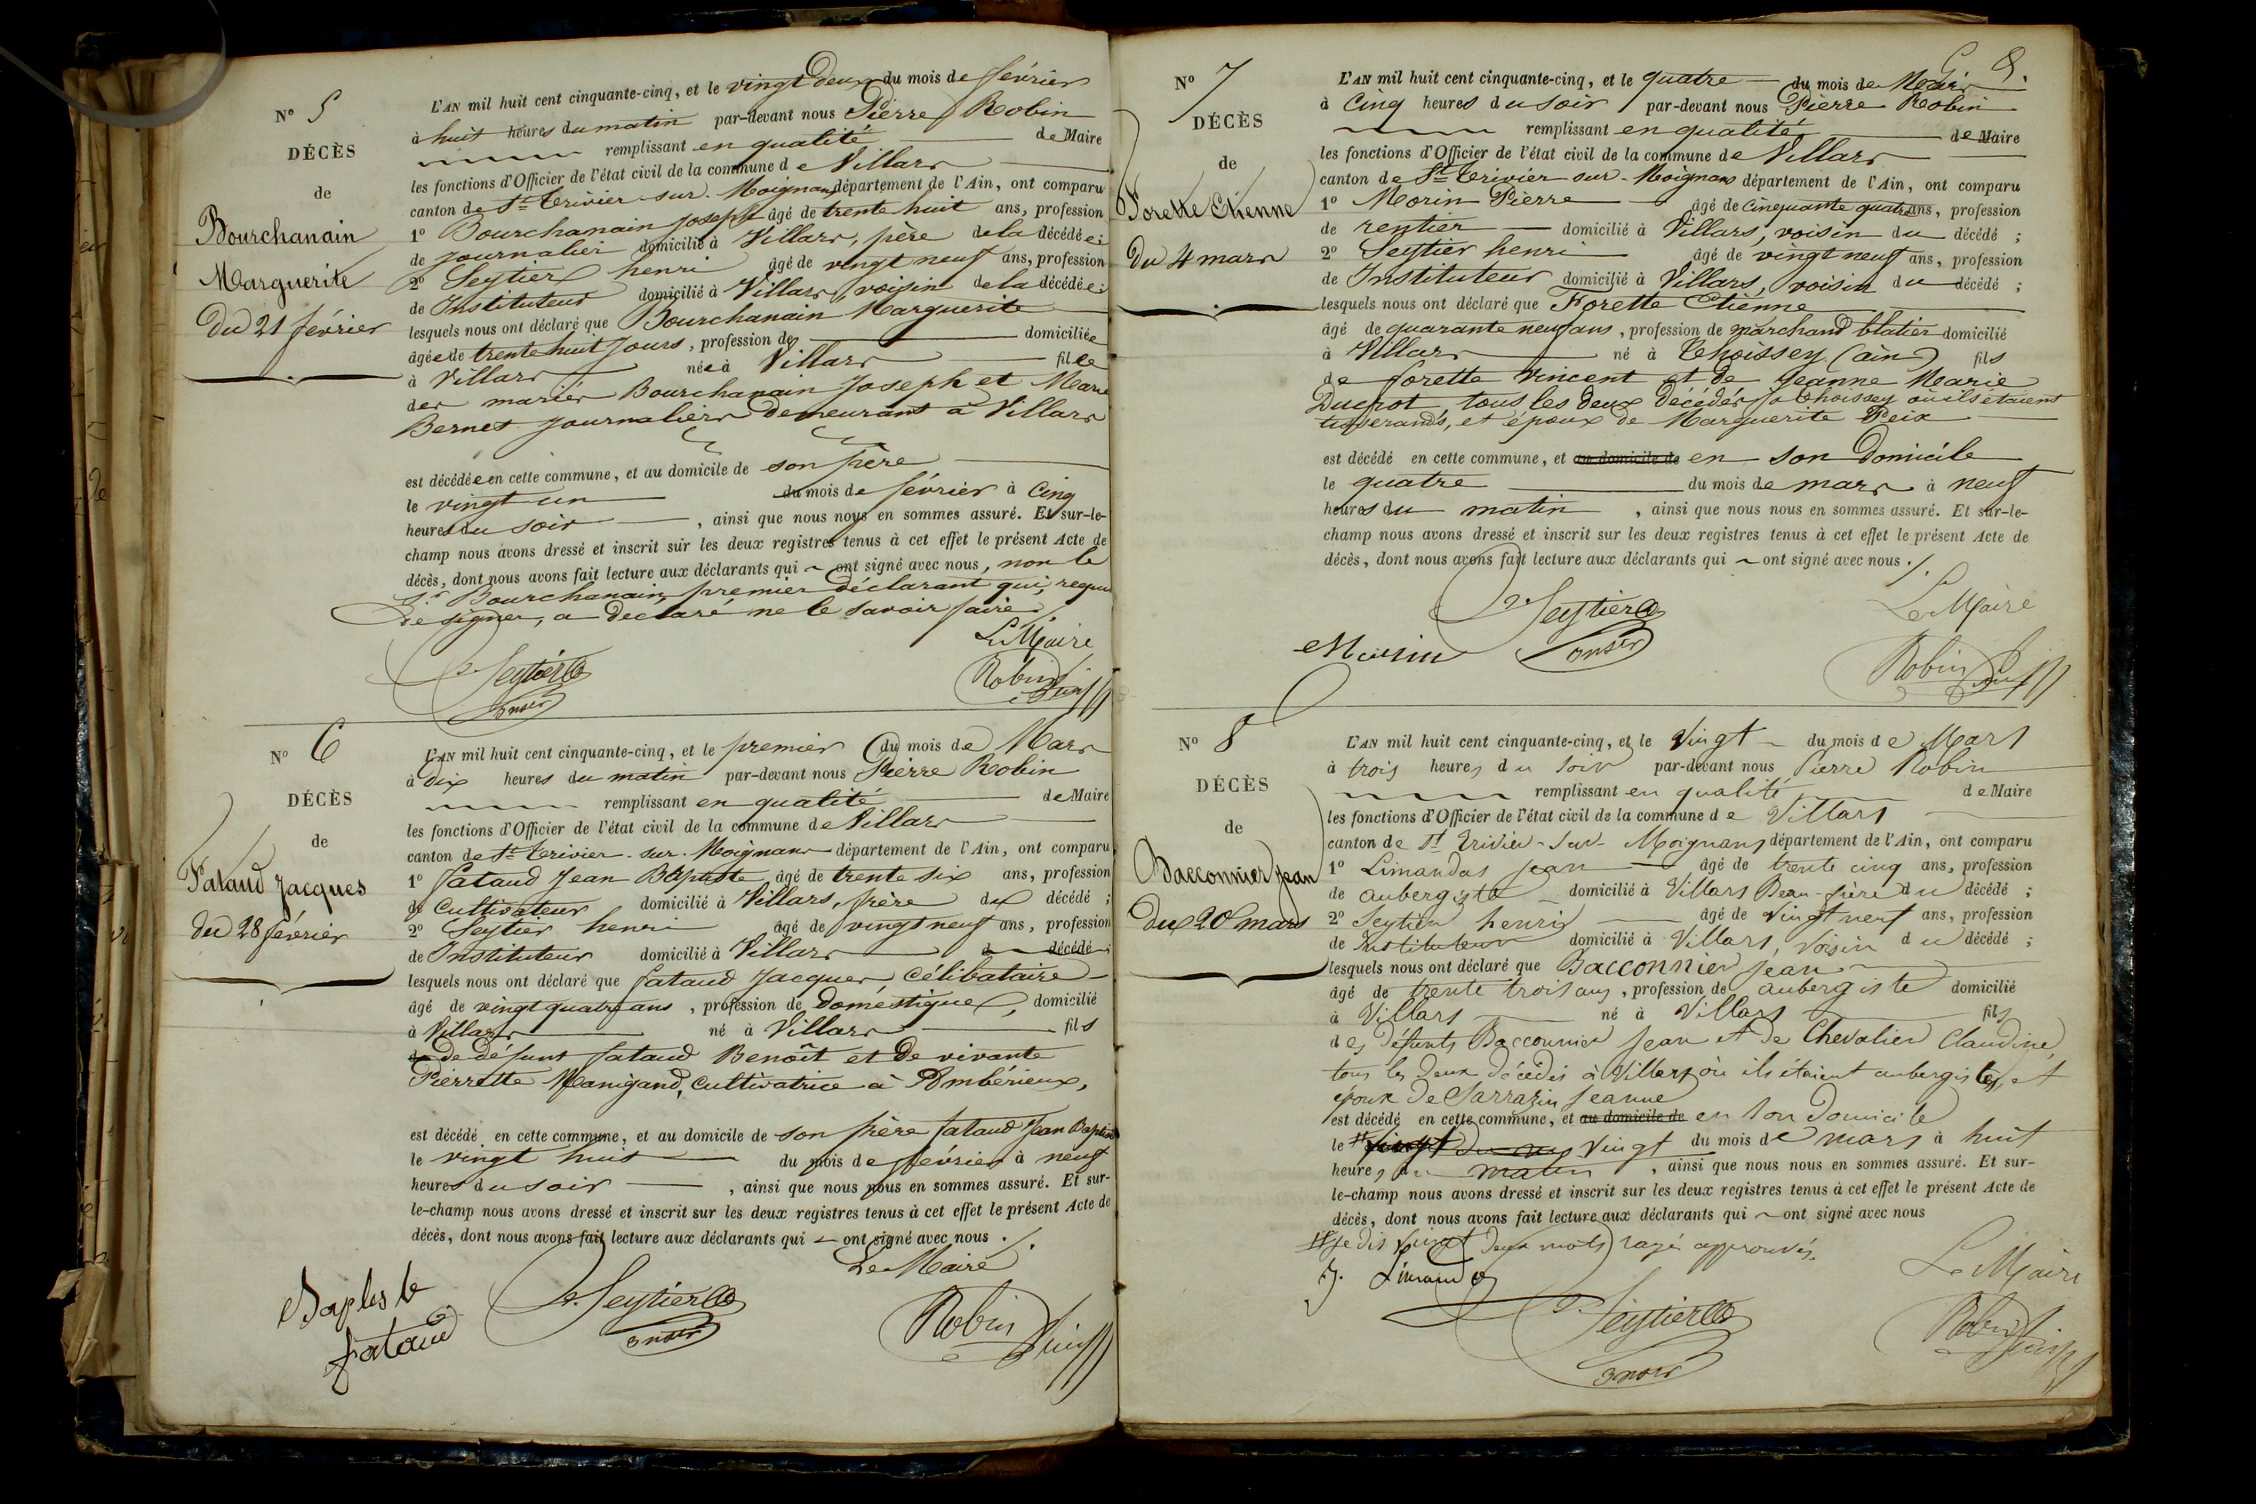 N° 5
DÉCÈS
de
Bourchanain
Marguerite
Du 21 février
L'AN mil huit cent cinquante-cinq, et le vingt deux du mois de février
à huit heures du matin par-devant nous Pierre Robin
remplissant en qualité de Maire
les fonctions d'Officier de l'état civil de la commune de Villars
canton de St Trivier-sur-Moignans département de l'Ain, ont comparu
1° Bourchanain Joseph âgé de trente huit ans, profession
de journalier domicilié à Villars, père de la décédée;
2° Seytier henri âgé de vingt neuf ans, profession
de Instituteur domicilié à Villars, voisin de la décédée;
lesquels nous ont déclaré que Bourchanain Marguerite
âgée de trente huit jours, profession de domiciliée
à Villars née à Villars fille
des mariés Bourchanain Joseph et Marie
Bernet journaliers demeurant à Villars
est décédée en cette commune, et au domicile de son père
le vingt un du mois de février à cinq
heures du soir, ainsi que nous nous en sommes assuré. Et sur-le-
champ nous avons dressé et inscrit sur les deux registres tenus à cet effet le présent Acte de
décès, dont nous avons fait lecture aux déclarants qui ont signé avec nous, non le
Sr Bourchanain, premier déclarant qui, requis
de signer, a declaré ne le savoir faire.
Le Maire
Seytier
Robin
N° 6
DÉCÈS
de
Fataud Jacques
Du 28 février
L'AN mil huit cent cinquante-cinq, et le premier du mois de Mars
à dix heures du matin par-devant nous Pierre Robin
remplissant en qualité de Maire
les fonctions d'Officier de l'état civil de la commune de Villars
canton de St Trivier-sur-Moignans département de l'Ain, ont comparu
1° Fataud Jean Baptiste, âgé de trente six ans, profession
de cultivateur domicilié à Villars, frère du décédé;
2° Seytier henri âgé de vingt neuf ans, profession
de Instituteur domicilié à Villars d décédé
lesquels nous ont déclaré que fataud Jacques, célibataire
âgé de vingt quatre ans, profession de doméstique, domicilié
à Villars né à Villars fils
de défunt fataud Benoît et de vivante
Pierrette Manigand, cultivatrice à Ambérieux,
est décédé en cette commune, et au domicile de son frère fataud Jean Baptiste
le vingt huit du mois de février à neuf
heures du soir, ainsi que nous nous en sommes assuré. Et sur-
le-champ nous avons dressé et inscrit sur les deux registres tenus à cet effet le présent Acte de
décès, dont nous avons fait lecture aux déclarants qui ont signé avec nous.
Le Maire
Baptiste
fataud
Seytier
Robin
8.
N° 7
DÉCÈS
de
Forette Etienne
Du 4 mars
L'AN mil huit cent cinquante-cinq, et le quatre du mois de Mars
à cinq heures du soir par-devant nous Pierre Robin
remplissant en qualité de Maire
les fonctions d'Officier de l'état civil de la commune de Villars
canton de St Trivier-sur-Moignans département de l'Ain, ont comparu
1° Morin Pierre âgé de cinquante quatre ans, profession
de rentier domicilié à Villars, voisin du décédé;
2° Seytier henri âgé de vingt neuf ans, profession
de Instituteur domicilié à Villars, voisin du décédé;
lesquels nous ont déclaré que Forette Etienne
âgé de quarante neuf ans, profession de marchand blatier domicilié
à Villars né à Thoissey (ain) fils
de forette Vincent et de Jeanne Marie
Ducrot tous les deux décédés à Thoissey où ils étaient
tisserands, et époux de Marguerite Peix
est décédé en cette commune, et au domicile de en son domicile
le quatre du mois de mars à neuf
heures du matin, ainsi que nous nous en sommes assuré. Et sur-le-
champ nous avons dressé et inscrit sur les deux registres tenus à cet effet le présent Acte de
décès, dont nous avons fait lecture aux déclarants qui ont signé avec nous.
Le Maire
Seytier
Morin
Robin
N° 8
DÉCÈS
de
Bacconnier Jean
Du 20 mars
L'AN mil huit cent cinquante-cinq, et le Vingt du mois de Mars
à trois heures du soir par-devant nous Pierre Robin
remplissant en qualité de Maire
les fonctions d'Officier de l'état civil de la commune de Villars
canton de St Trivier-sur-Moignans département de l'Ain, ont comparu
1° Limandas Jean âgé de trente cinq ans, profession
de aubergiste domicilié à Villars Beau-frère du décédé;
2° Seytier henri âgé de Vingt neuf ans, profession
de Instituteur domicilié à Villars, voisin du décédé;
lesquels nous ont déclaré que Bacconnier Jean
âgé de trente trois ans, profession de aubergiste domicilié
à Villars né à Villars fils
des défunts Bacconnier Jean et de Chevalier Claudine,
tous les deux décédés à Villars où ils étaient aubergistes, et
époux de Sarrazin Jeanne
est décédé en cette commune, et au domicile de en son domicile
le vingt du mois de mars à huit
heures du matin, ainsi que nous nous en sommes assuré. Et sur-
le-champ nous avons dressé et inscrit sur les deux registres tenus à cet effet le présent Acte de
décès, dont nous avons fait lecture aux déclarants qui ont signé avec nous
Je dis vingt deux mots rayé approuvés.
J. Limandas
Le Maire
Seytier
Robin